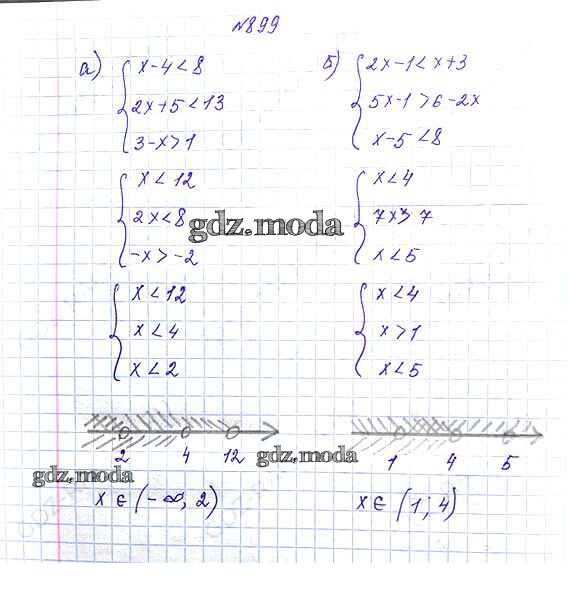 №899
а)
x-4<8
2x+5<13
3-x>1
x<12
2x<8
-x>-2
x<12
x<4
x<2
2 4 12
x∈(-∞, 2)
б)
2x-1<x+3
5x-1>6-2x
x-5<8
x<4
7x>7
x<5
x<4
x>1
x<5
1 4 5
x∈(1; 4)
gdz.moda
gdz.moda
gdz.moda